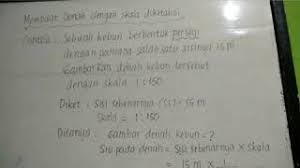 Membuat Denah dengan skala diketahui
Contoh: Sebuah kebun berbentuk persegi
dengan panjang salah satu sisinya 15 m
Gambarkan denah kebun tersebut
dengan skala 1:150
Diket: Sisi sebenarnya (s) = 15 m
Skala = 1:150
Ditanya: Gambar denah kebun = ?
Sisi pada denah = Sisi sebenarnya x skala
= 15 m x